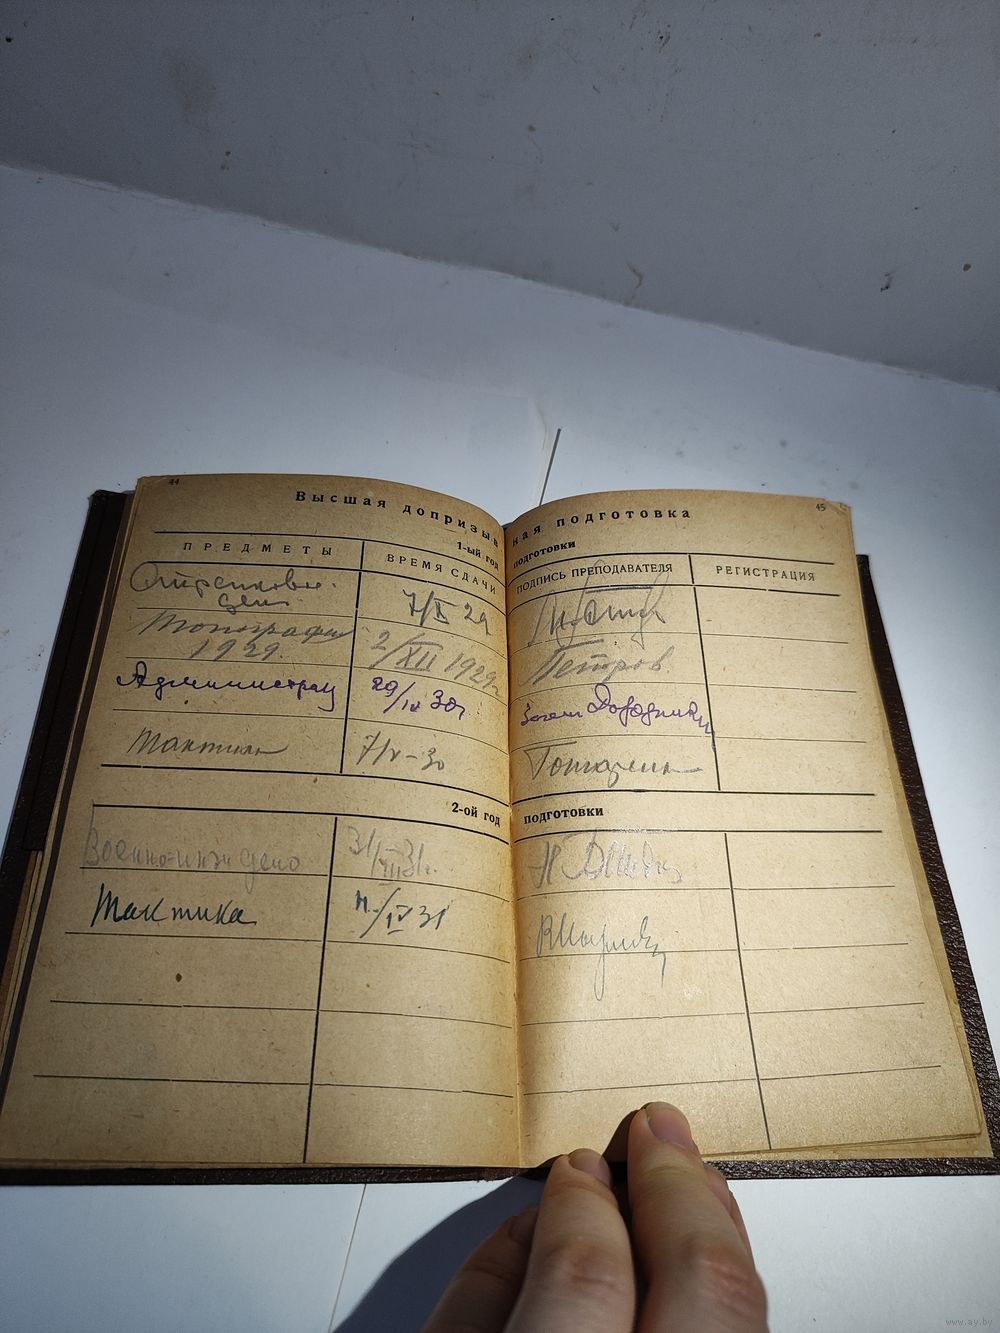 44
45
Высшая допризывная подготовка
1-ый год подготовки
ПРЕДМЕТЫ ВРЕМЯ СДАЧИ ПОДПИСЬ ПРЕПОДАВАТЕЛЯ РЕГИСТРАЦИЯ
дело 7/X 29
Топография
1929. 2/XII 1929г Петров
Администрац 29/IV 30г
Тактика 7/V-30
2-ой год подготовки
Военно-инж дело 31/III-31г.
Тактика 11/IV 31
www.ay.by